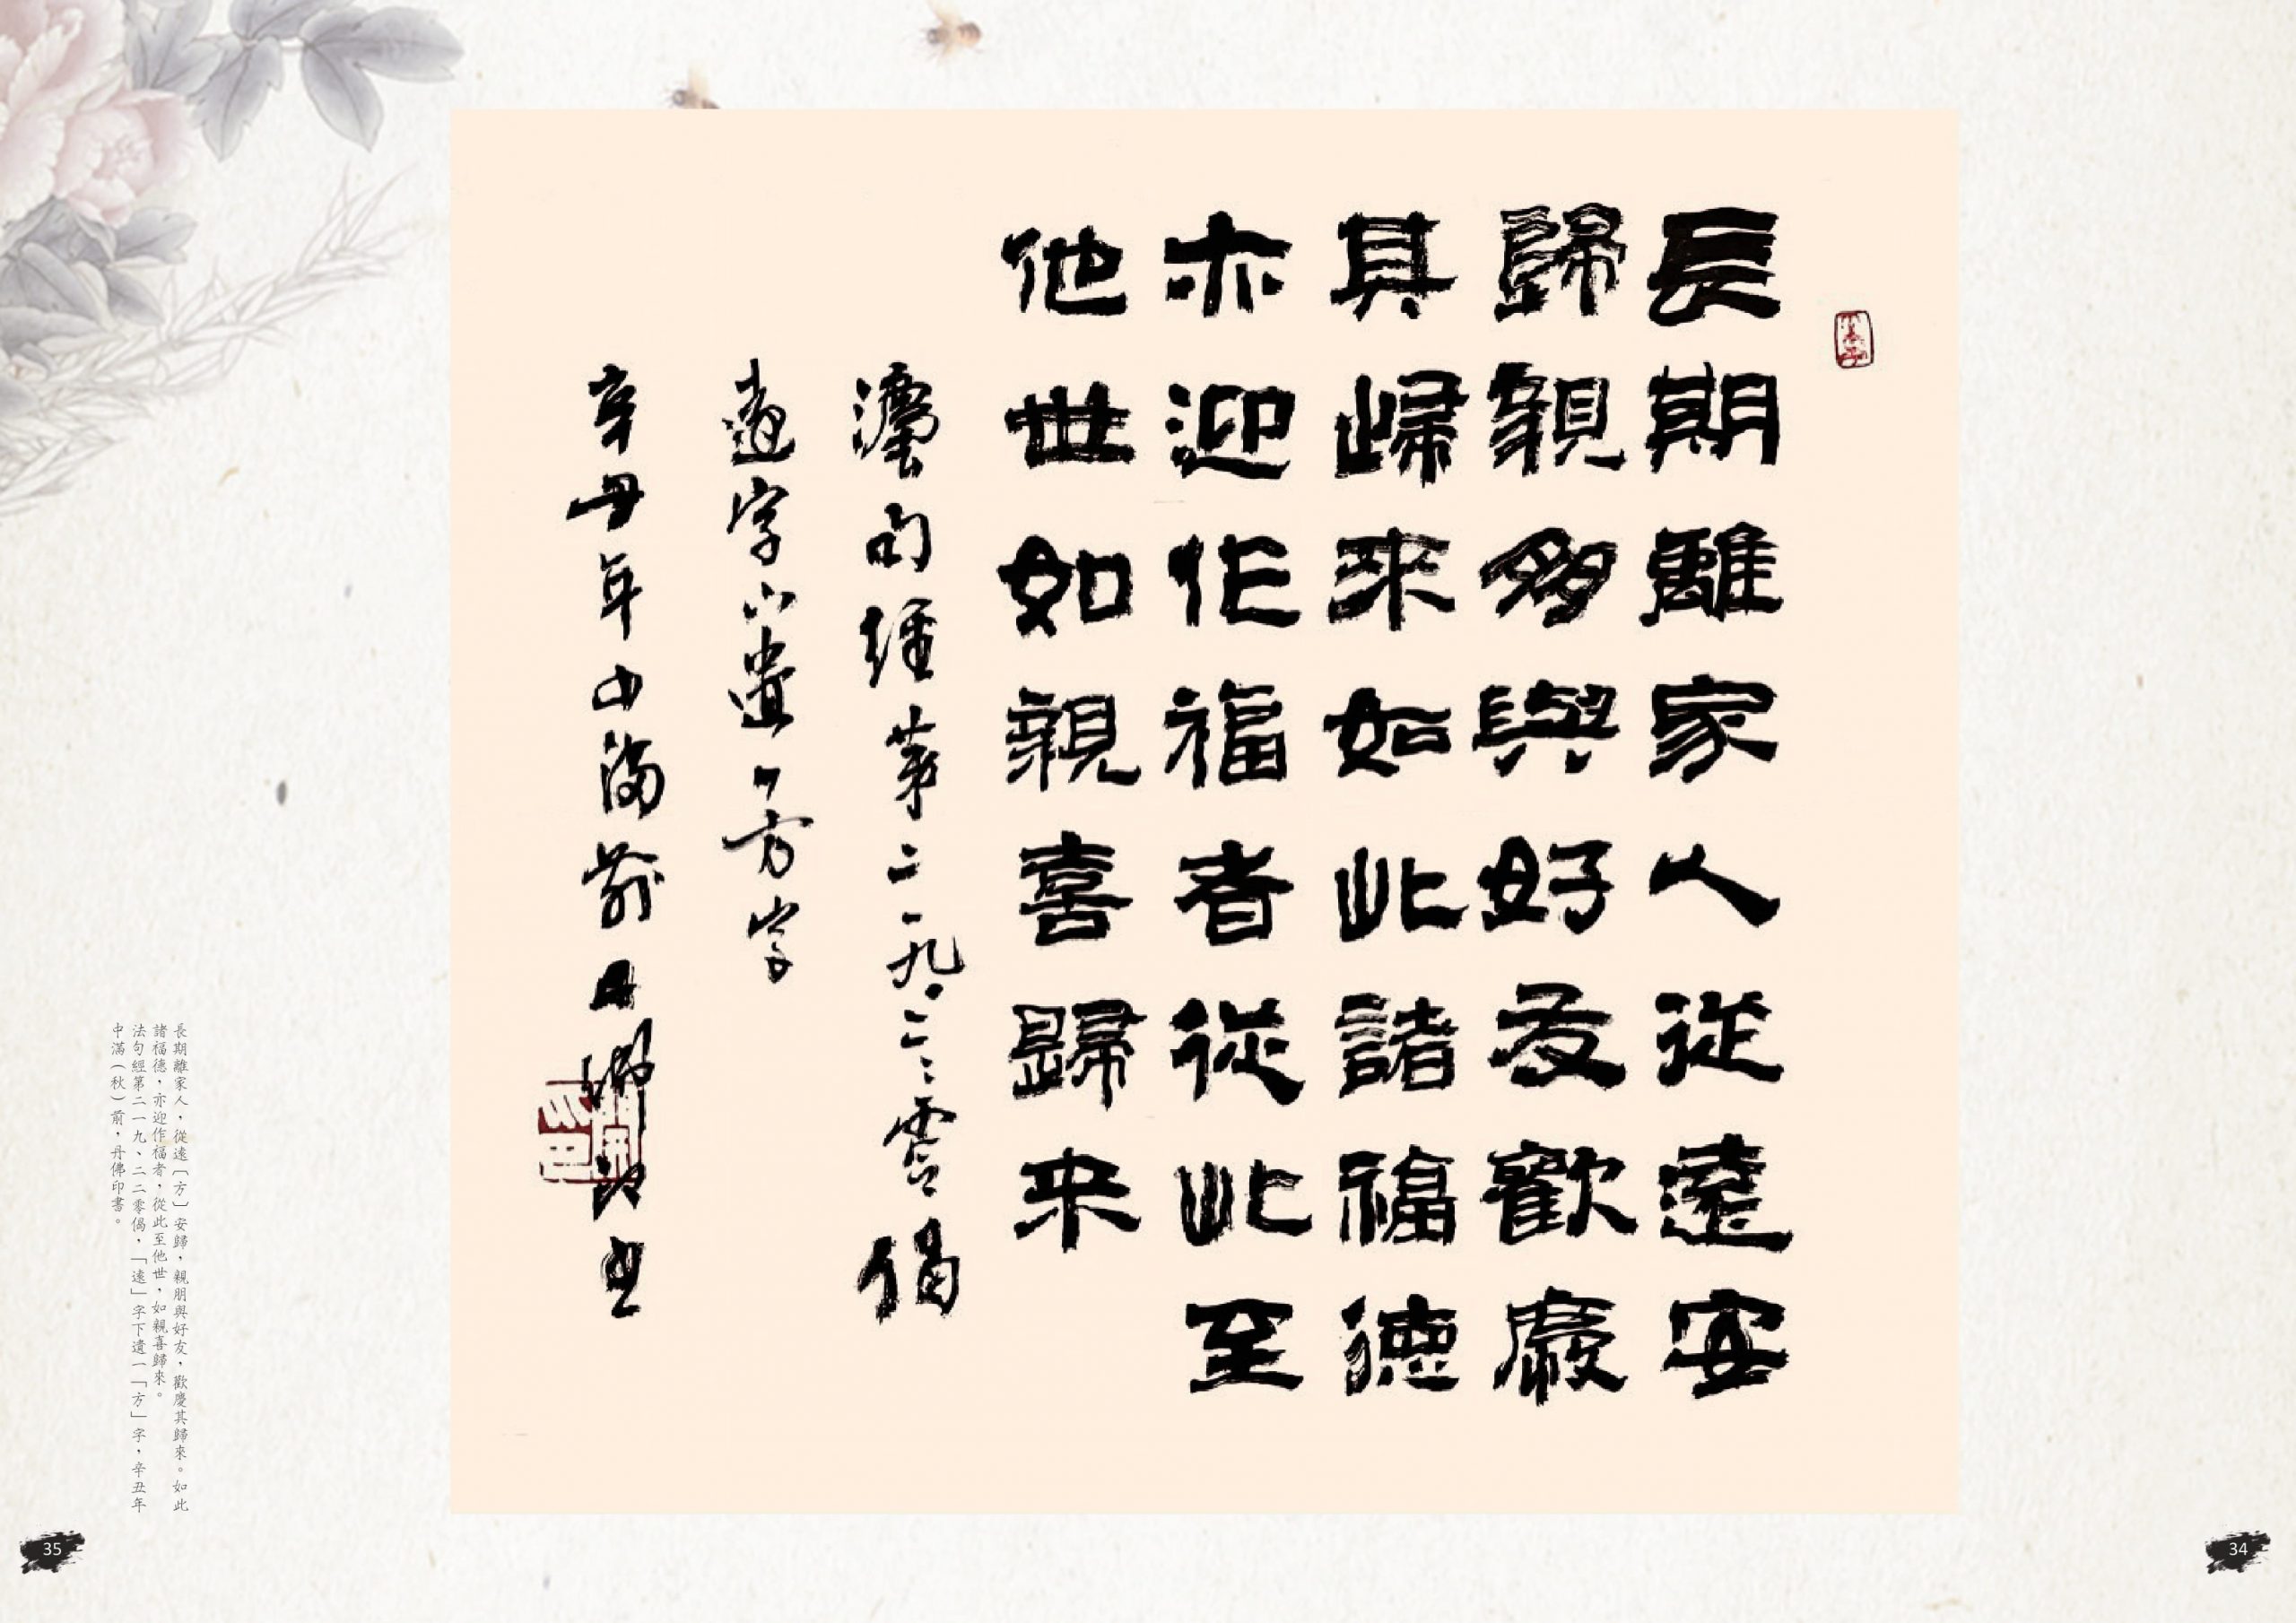 長期離家人從遠安
歸親朋與好友歡慶
其歸來如此諸福德
亦迎作福者從此至
他世如親喜歸来
灋句經第二一九、二二零偈
遠字下遺一方字
辛丑年中滿前丹佛印書
長期離家人，從遠〔方〕安歸，親朋與好友，歡慶其歸來。如此
諸福德，亦迎作福者，從此至他世，如親喜歸來。
法句經第二一九、二二零偈，「遠」字下遺一「方」字，辛丑年
中滿（秋）前，丹佛印書。
34
35